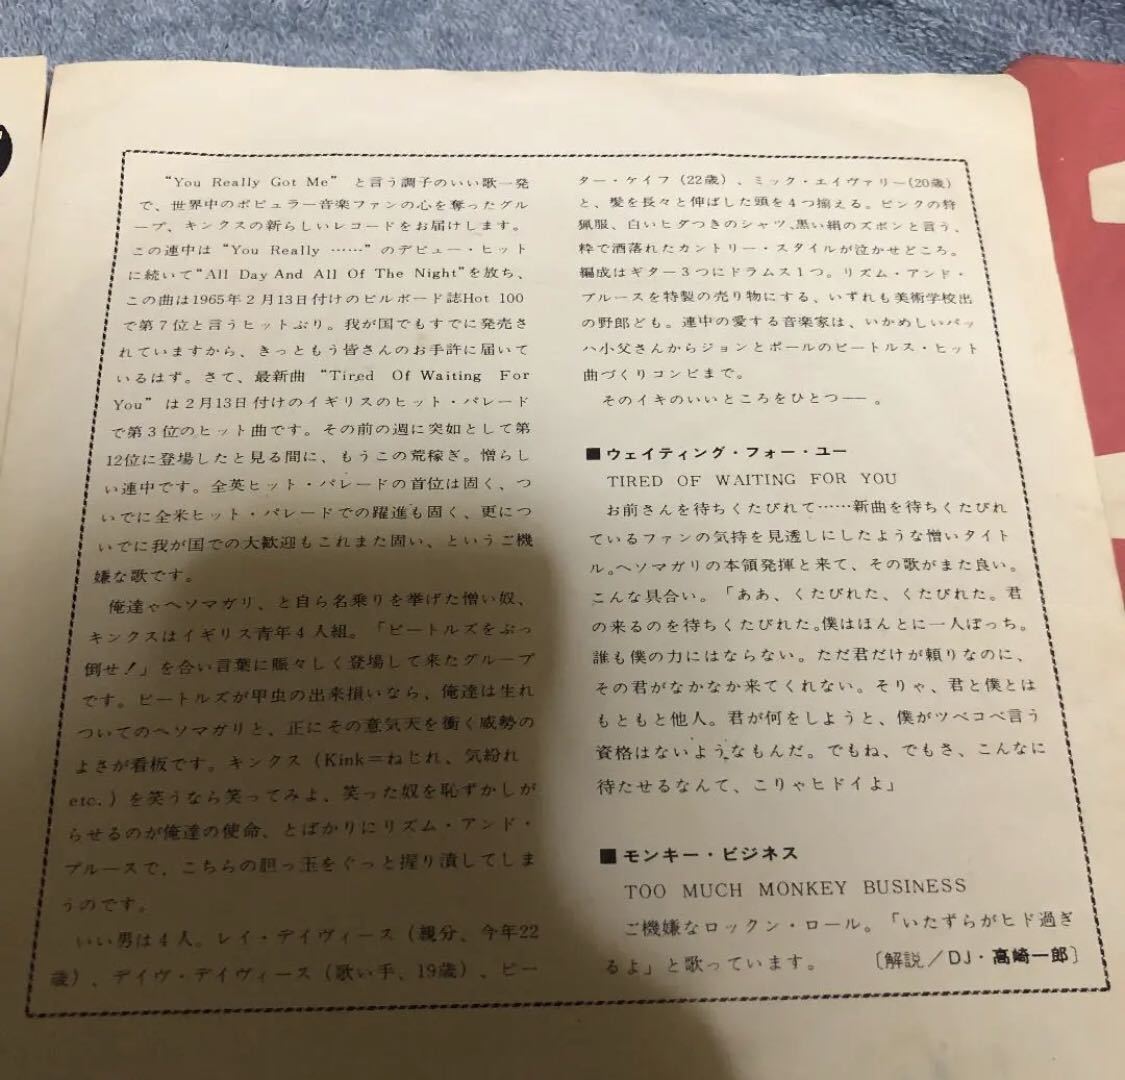 “You Really Got Me” と言う調子のいい歌一発
で、世界中のポピュラー音楽ファンの心を奪ったグル
ープ、キンクスの新らしいレコードをお届けします。
この連中は “You Really ……” のデビュー・ヒット
に続いて“All Day And All Of The Night”を放ち、
この曲は1965年2月13日付けのビルボード誌Hot 100
で第7位と言うヒットぶり。我が国でもすでに発売さ
れていますから、きっともう皆さんのお手許に届いて
いるはず。さて、最新曲 “Tired Of Waiting For
You” は2月13日付けのイギリスのヒット・パレード
で第3位のヒット曲です。その前の週に突如として第
12位に登場したと見る間に、もうこの荒稼ぎ。憎らし
い連中です。全英ヒット・パレードの首位は固く、つ
いでに全米ヒット・パレードでの躍進も固く、更につ
いでに我が国での大歓迎もこれまた固い、というご機
嫌な歌です。
俺達ゃヘソマガリ、と自ら名乗りを挙げた憎い奴、
キンクスはイギリス青年4人組。「ビートルズをぶっ
倒せ!」を合い言葉に賑々しく登場して来たグループ
です。ビートルズが甲虫の出来損いなら、俺達は生れ
ついてのヘソマガリと、正にその意気天を衝く威勢の
よさが看板です。キンクス(Kink=ねじれ、気紛れ
etc.)を笑うなら笑ってみよ、笑った奴を恥ずかしが
らせるのが俺達の使命、とばかりにリズム・アンド・
ブルースで、こちらの胆っ玉をぐっと握り潰してしま
うのです。
いい男は4人。レイ・デイヴィース(親分、今年22
歳)、デイヴ・デイヴィース(歌い手、19歳)、ピー
ター・ケイフ(22歳)、ミック・エイヴァリー(20歳)
と、髪を長々と伸ばした頭を4つ揃える。ピンクの狩
猟服、白いヒダつきのシャツ、黒い絹のズボンと言う、
粋で洒落れたカントリー・スタイルが泣かせどころ。
編成はギター3つにドラムス1つ。リズム・アンド・
ブルースを特製の売り物にする、いずれも美術学校出
の野郎ども。連中の愛する音楽家は、いかめしいバッ
ハ小父さんからジョンとポールのビートルス・ヒット
曲づくりコンビまで。
そのイキのいいところをひとつ——。
■ウェイティング・フォー・ユー
TIRED OF WAITING FOR YOU
お前さんを待ちくたびれて……新曲を待ちくたびれ
ているファンの気持を見透しにしたような憎いタイト
ル。ヘソマガリの本領発揮と来て、その歌がまた良い。
こんな具合い。「ああ、くたびれた、くたびれた。君
の来るのを待ちくたびれた。僕はほんとに一人ぼっち。
誰も僕の力にはならない。ただ君だけが頼りなのに、
その君がなかなか来てくれない。そりゃ、君と僕とは
もともと他人。君が何をしようと、僕がツベコベ言う
資格はないようなもんだ。でもね、でもさ、こんなに
待たせるなんて、こりゃヒドイよ」
■モンキー・ビジネス
TOO MUCH MONKEY BUSINESS
ご機嫌なロックン・ロール。「いたずらがヒド過ぎ
るよ」と歌っています。 〔解説/DJ・高崎一郎〕